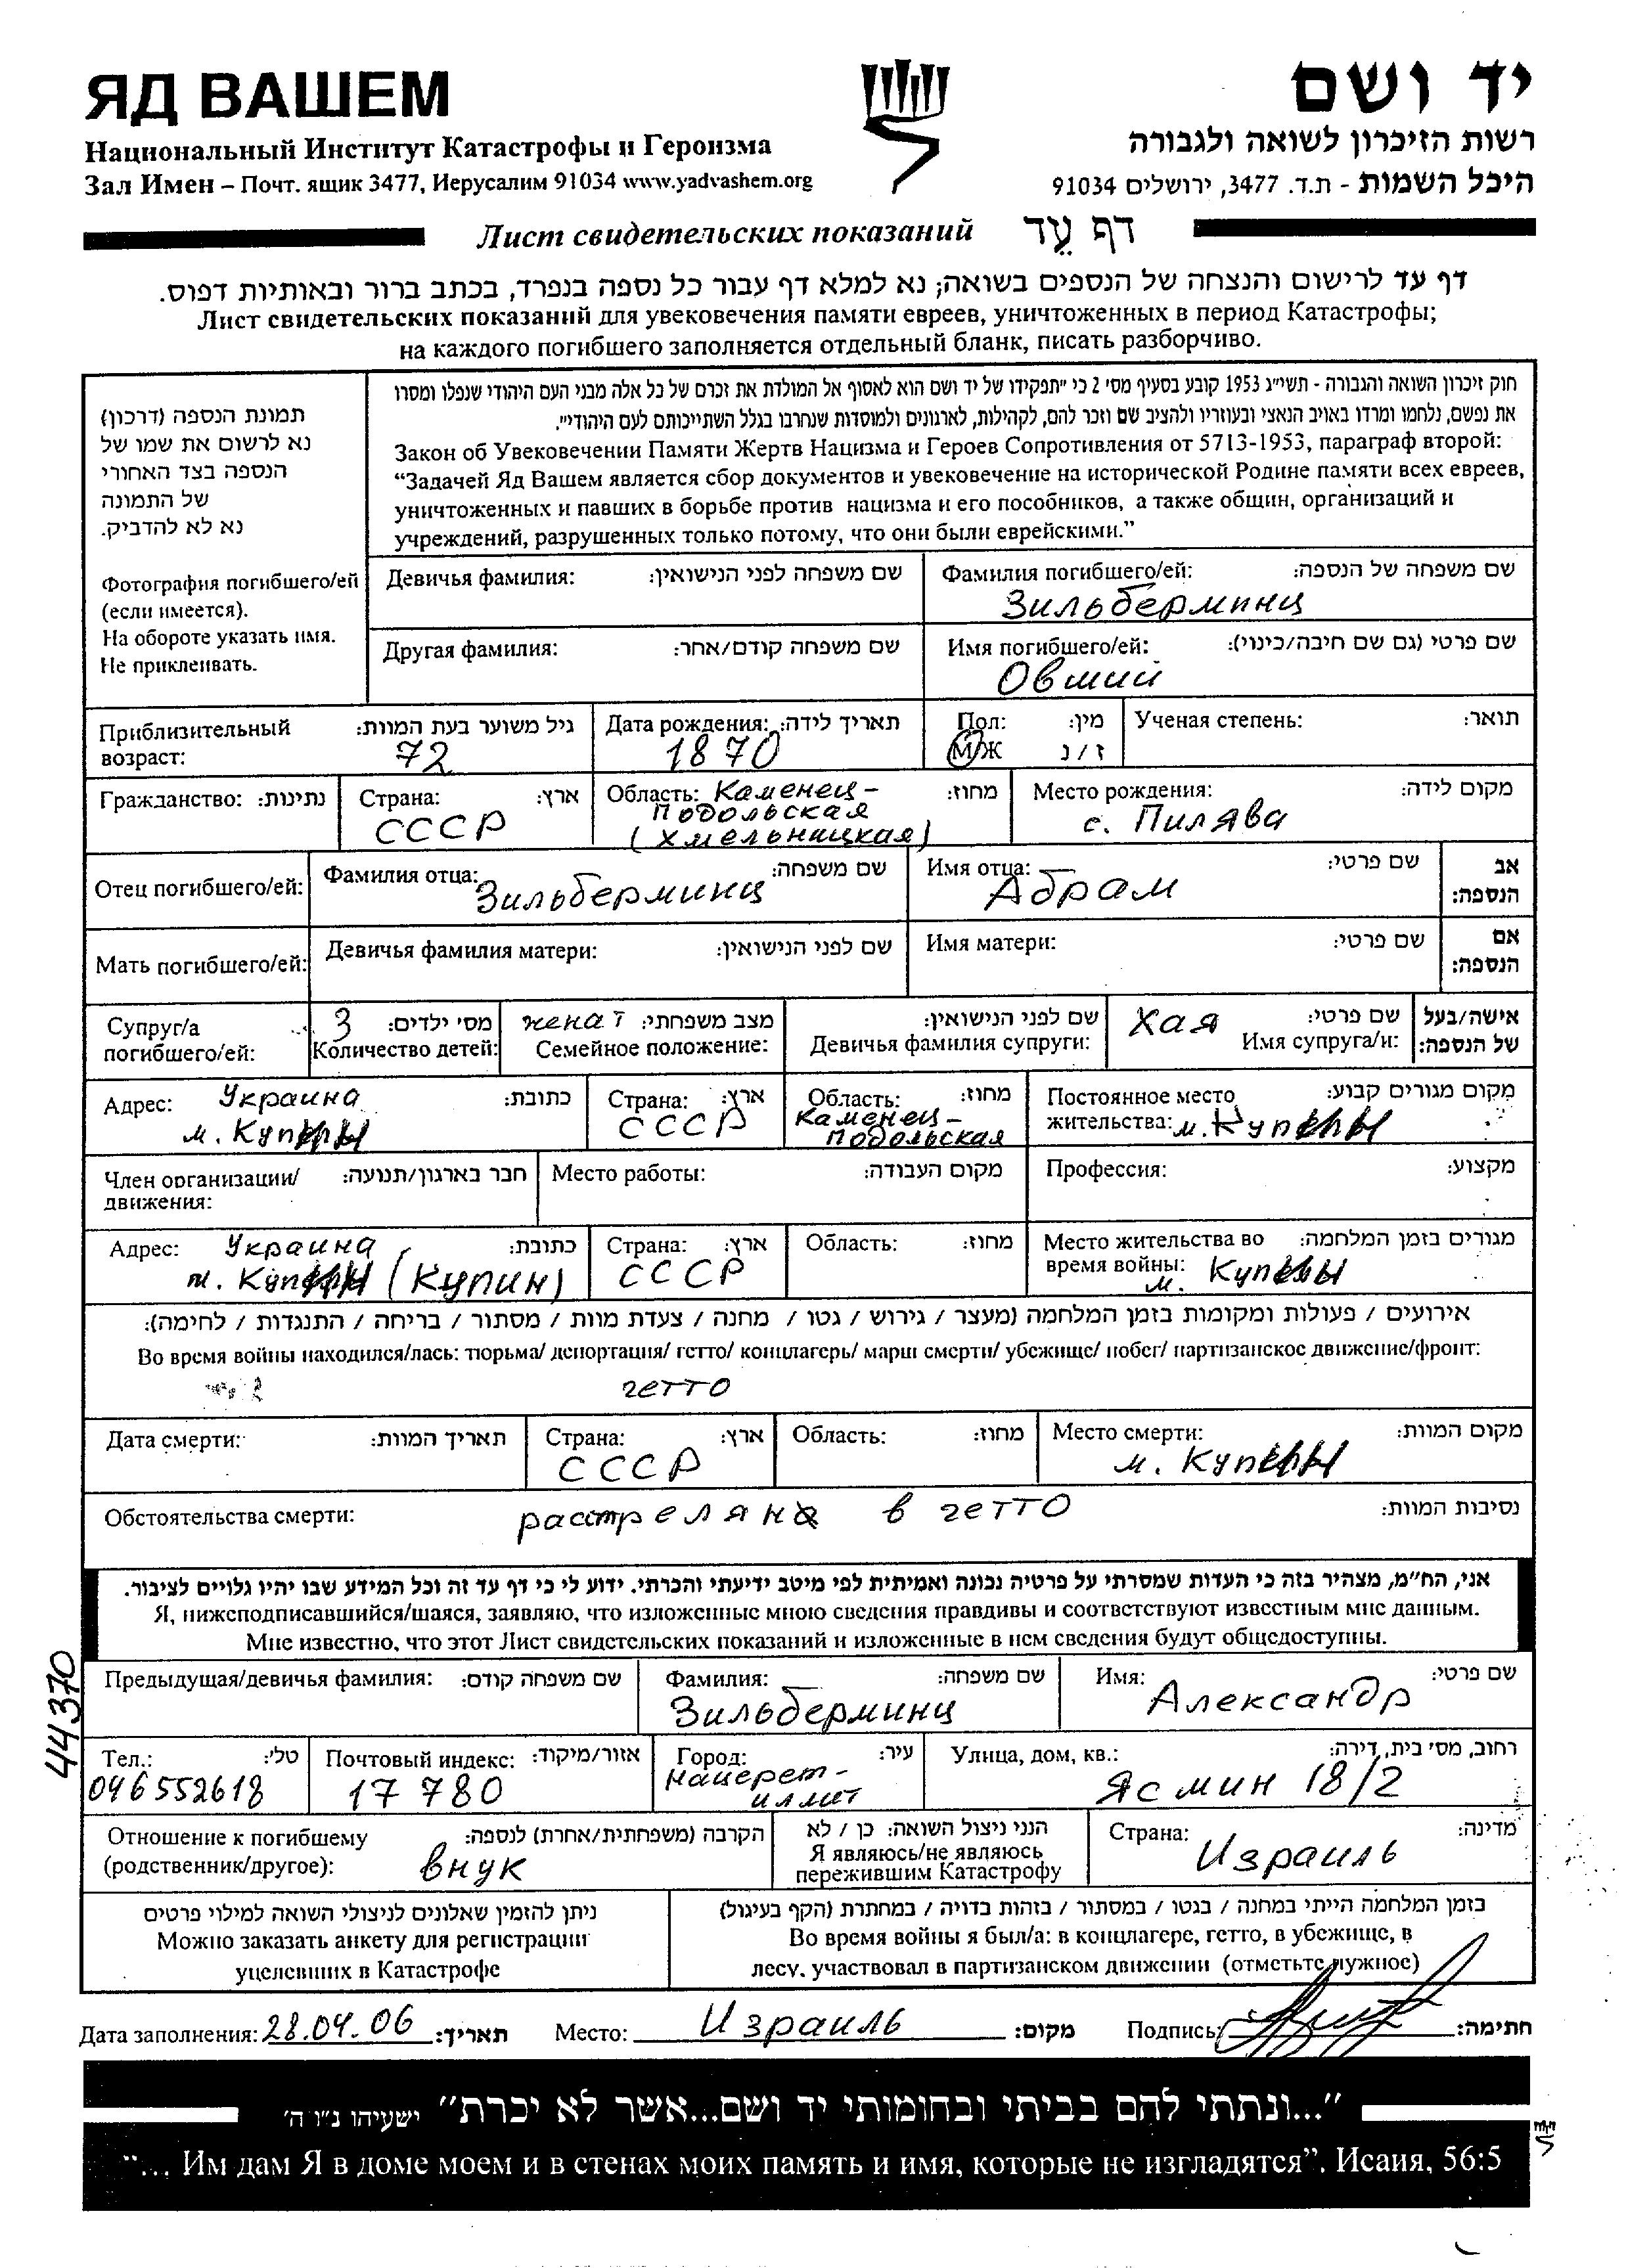 ЯД ВАШЕМ
Национальный Институт Катастрофы и Героизма
Зал Имен – Почт. ящик 3477, Иерусалим 91034 www.yadvashem.org
יד ושם
רשות הזיכרון לשואה ולגבורה
היכל השמות - ת.ד. 3477, ירושלים 91034
Лист свидетельских показаний דף עֵד
דף עד לרישום והנצחה של הנספים בשואה; נא למלא דף עבור כל נספה בנפרד, בכתב ברור ובאותיות דפוס.
Лист свидетельских показаний для увековечения памяти евреев, уничтоженных в период Катастрофы;
на каждого погибшего заполняется отдельный бланк, писать разборчиво.
תמונת הנספה (דרכון)
נא לרשום את שמו של
הנספה בצד האחורי
של התמונה
נא לא להדביק.
Фотография погибшего/ей
(если имеется).
На обороте указать имя.
Не приклеивать.
חוק זיכרון השואה והגבורה - תשי"ג 1953 קובע בסעיף מס' 2 כי "תפקידו של יד ושם הוא לאסוף אל המולדת את זכרם של כל אלה מבני העם היהודי שנפלו ומסרו
את נפשם, נלחמו ומרדו באויב הנאצי ובעוזריו ולהציב שם וזכר להם, לקהילות, לארגונים ולמוסדות שנחרבו בגלל השתייכותם לעם היהודי".
Закон об Увековечении Памяти Жертв Нацизма и Героев Сопротивления от 5713-1953, параграф второй:
“Задачей Яд Вашем является сбор документов и увековечение на исторической Родине памяти всех евреев,
уничтоженных и павших в борьбе против нацизма и его пособников, а также общин, организаций и
учреждений, разрушенных только потому, что они были еврейскими.”
Девичья фамилия: שם משפחה לפני הנישואין: Фамилия погибшего/ей: שם משפחה של הנספה:
Зильберминц
Другая фамилия: שם משפחה קודם/אחר: Имя погибшего/ей: שם פרטי (גם שם חיבה/כינוי):
Овший
Приблизительный возраст: גיל משוער בעת המוות: Дата рождения: תאריך לידה: Пол: מין: Ученая степень: תואר:
72 1870 М/Ж ז / נ
Гражданство: נתינות: Страна: ארץ: Область: Каменец- מחוז: Место рождения: מקום לידה:
СССР Подольская с. Пилява
(Хмельницкая)
Отец погибшего/ей: Фамилия отца: שם משפחה: Имя отца: שם פרטי: אב הנספה:
Зильберминц Абрам
Мать погибшего/ей: Девичья фамилия матери: שם לפני הנישואין: Имя матери: שם פרטי: אם הנספה:
Супруг/а погибшего/ей: 3 מס' ילדים: женат מצב משפחתי: שם לפני הנישואין: Хая שם פרטי: אישה/בעל של הנספה:
Количество детей: Семейное положение: Девичья фамилия супруги: Имя супруга/и:
Адрес: Украина כתובת: Страна: ארץ: Область: מחוז: Постоянное место жительства: מקום מגורים קבוע:
СССР Каменец-
Подольская
Член организации/ движения: חבר בארגון/תנועה: Место работы: מקום העבודה: Профессия: מקצוע:
Адрес: Украина כתובת: Страна: ארץ: Область: מחוז: Место жительства во время войны: מגורים בזמן המלחמה:
(Купин) СССР
אירועים / פעולות ומקומות בזמן המלחמה (מעצר / גירוש / גטו / מחנה / צעדת מוות / מסתור / בריחה / התנגדות / לחימה):
Во время войны находился/лась: тюрьма/ депортация/ гетто/ концлагерь/ марш смерти/ убежище/ побег/ партизанское движение/фронт:
гетто
Дата смерти: תאריך המוות: Страна: ארץ: Область: מחוז: Место смерти: מקום המוות:
СССР
Обстоятельства смерти: расстрелян в гетто נסיבות המוות:
אני, הח"מ, מצהיר בזה כי העדות שמסרתי על פרטיה נכונה ואמיתית לפי מיטב ידיעתי והכרתי. ידוע לי כי דף עד זה וכל המידע שבו יהיו גלויים לציבור.
Я, нижеподписавшийся/шаяся, заявляю, что изложенные мною сведения правдивы и соответствуют известным мне данным.
Мне известно, что этот Лист свидетельских показаний и изложенные в нем сведения будут общедоступны.
44370
Предыдущая/девичья фамилия: שם משפחה קודם: Фамилия: שם משפחה: Имя: שם פרטי:
Зильберминц Александр
Тел.: טל': Почтовый индекс: אזור/מיקוד: Город: עיר: Улица, дом, кв.: רחוב, מס' בית, דירה:
046552618 17780 Нацерет-иллит Ясмин 18/2
Отношение к погибшему הקרבה (משפחתית/אחרת) לנספה: הנני ניצול השואה: כן / לא Страна: מדינה:
(родственник/другое): внук Я являюсь/не являюсь Израиль
пережившим Катастрофу
ניתן להזמין שאלונים לניצולי השואה למילוי פרטים
Можно заказать анкету для регистрации
уцелевших в Катастрофе
בזמן המלחמה הייתי במחנה / בגטו / במסתור / בזהות בדויה / במחתרת (הקף בעיגול)
Во время войны я был/а: в концлагере, гетто, в убежище, в
лесу, участвовал в партизанском движении (отметьте нужное)
Дата заполнения: 28.04.06 תאריך: Место: Израиль מקום: Подпись: חתימה:
"...ונתתי להם בביתי ובחומותי יד ושם...אשר לא יכרת" ישעיהו נ"ו ה'
“... Им дам Я в доме моем и в стенах моих память и имя, которые не изгладятся”. Исаия, 56:5